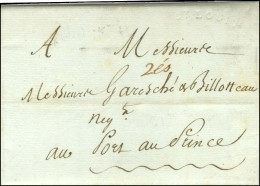 A Messieurs
Messieurs Garesché & Billotteau
Negts
au Port au Prince